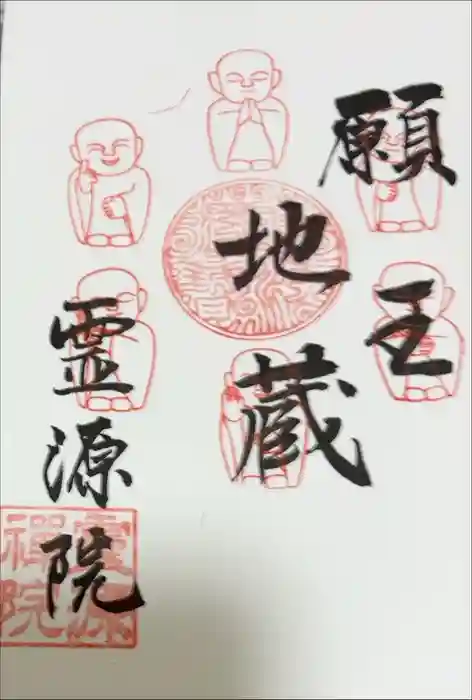 願王
地蔵
霊源院
靈源
禪院